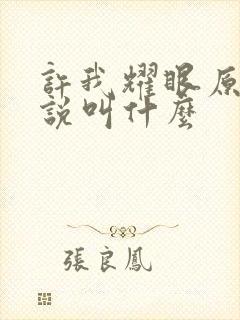 許我耀眼原
說叫什麼
張良鳳